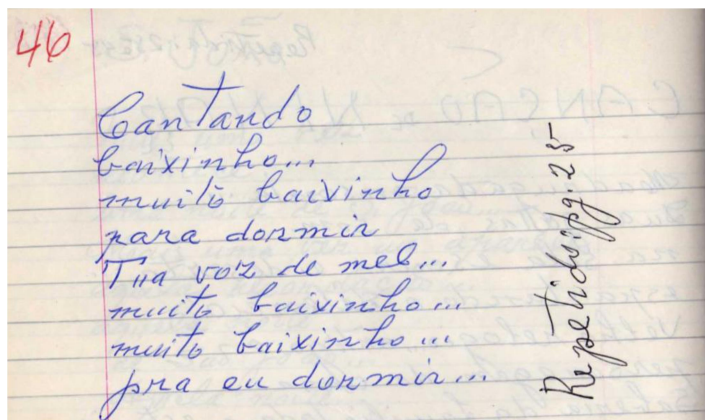 46
Cantando
baixinho...
muito baixinho
para dormir
Tua voz de mel...
muito baixinho...
muito baixinho...
pra eu dormir...
Repetido: pg. 25